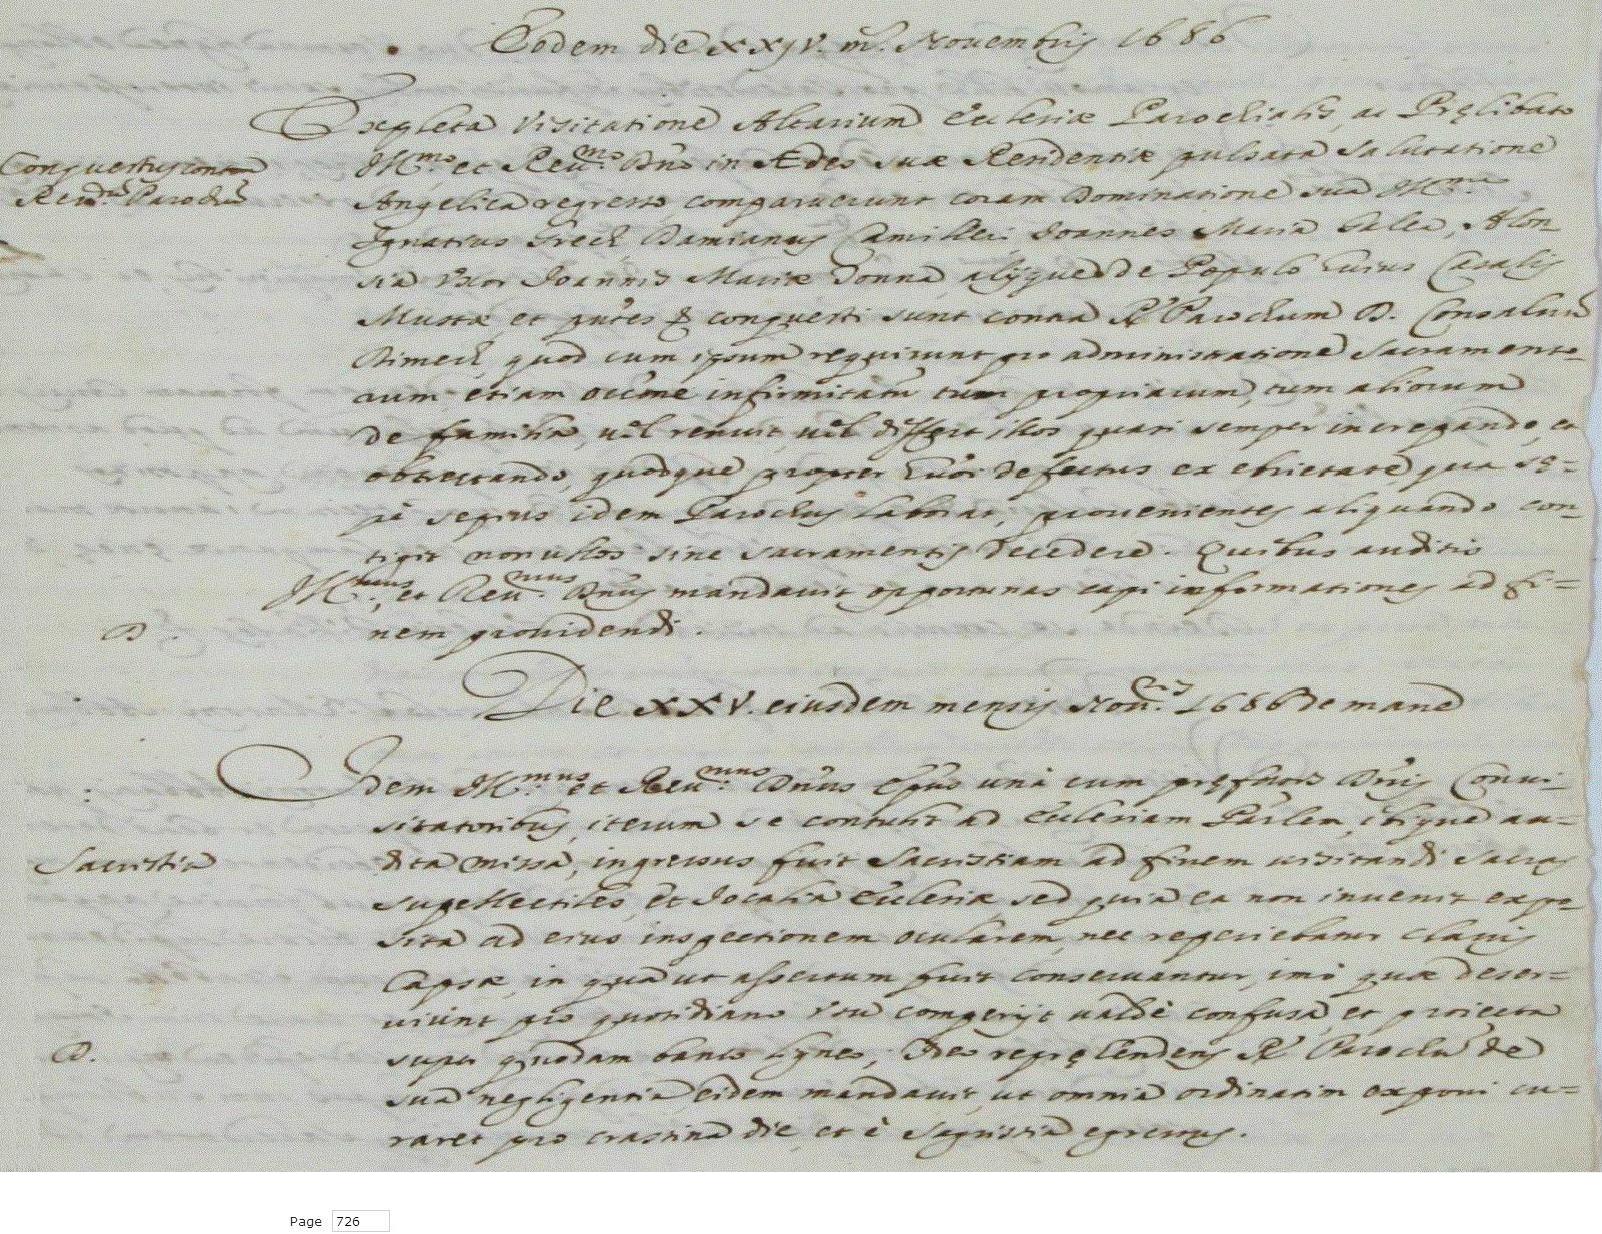 Eodem die xxjv. m.s Novembris 1686
Expleta visitatione Altarium Ecclesiæ Parochialis, ac Prelibato
Conquestus contra
Ill.mo et Rev.mo Dno in Ædes suæ Residentiæ pulsata salutatione
Rev.dum Parochum
Angelica regresso, comparuerunt coram Dominatione sua Ill.ma
Ignatius Grech, Damianus Camilleri, Joannes Maria Galea, Alon
sia Uxor Joannis Mariæ Donna, alijque de Populo huius Casalis
Mustæ et conquesti sunt contra R. Parochum D.
Bimech, quod cum ipsum requirunt pro administratione Sacramento-
rum etiam infirmitatum tum propriarum, tum aliorum
de familia, vel renuit, vel differt illos quasi semper increpando, et
obtrectando, quodque propter defectus ex ebrietate, qua se=
pè sepius idem Parochus laborat, provenientes aliquando con-
tigit nonullos sine sacramentis decedere. Quibus auditis
Ill.mus, et Rev.mus Dnus mandavit opportunas capi informationes ad fi=
D.
nem providendi.
Die XXV. eiusdem mensis Nov.ris 1686 de mane
Idem Ill.mus et Rev.mus Dnus Epus unà cum prefatis Dnis Convi-
sitatoribus, iterum se contulit ad Ecclesiam Parlem, ibique au=
Sacristia
dita missa, ingressus fuit Sacristiam ad finem visitandi sacras
supellectiles, et Jocalia Ecclesiæ, sed quia ea non invenit expo-
sita ad eius inspectionem ocularem, nec reperiebatur clavis
Capsæ, in qua ut assertum fuit conservantur, imò quæ deser=
viunt pro quotidiano usu comperijt valdè confusa, et proiecta
D.
super quodam banco ligneo, Ideo reprehendens R. Parochum de
sua negligentia, eidem mandavit, ut omnia ordinatim exponi cu=
raret pro crastina die, et è Sagristia egressus.
Page 726